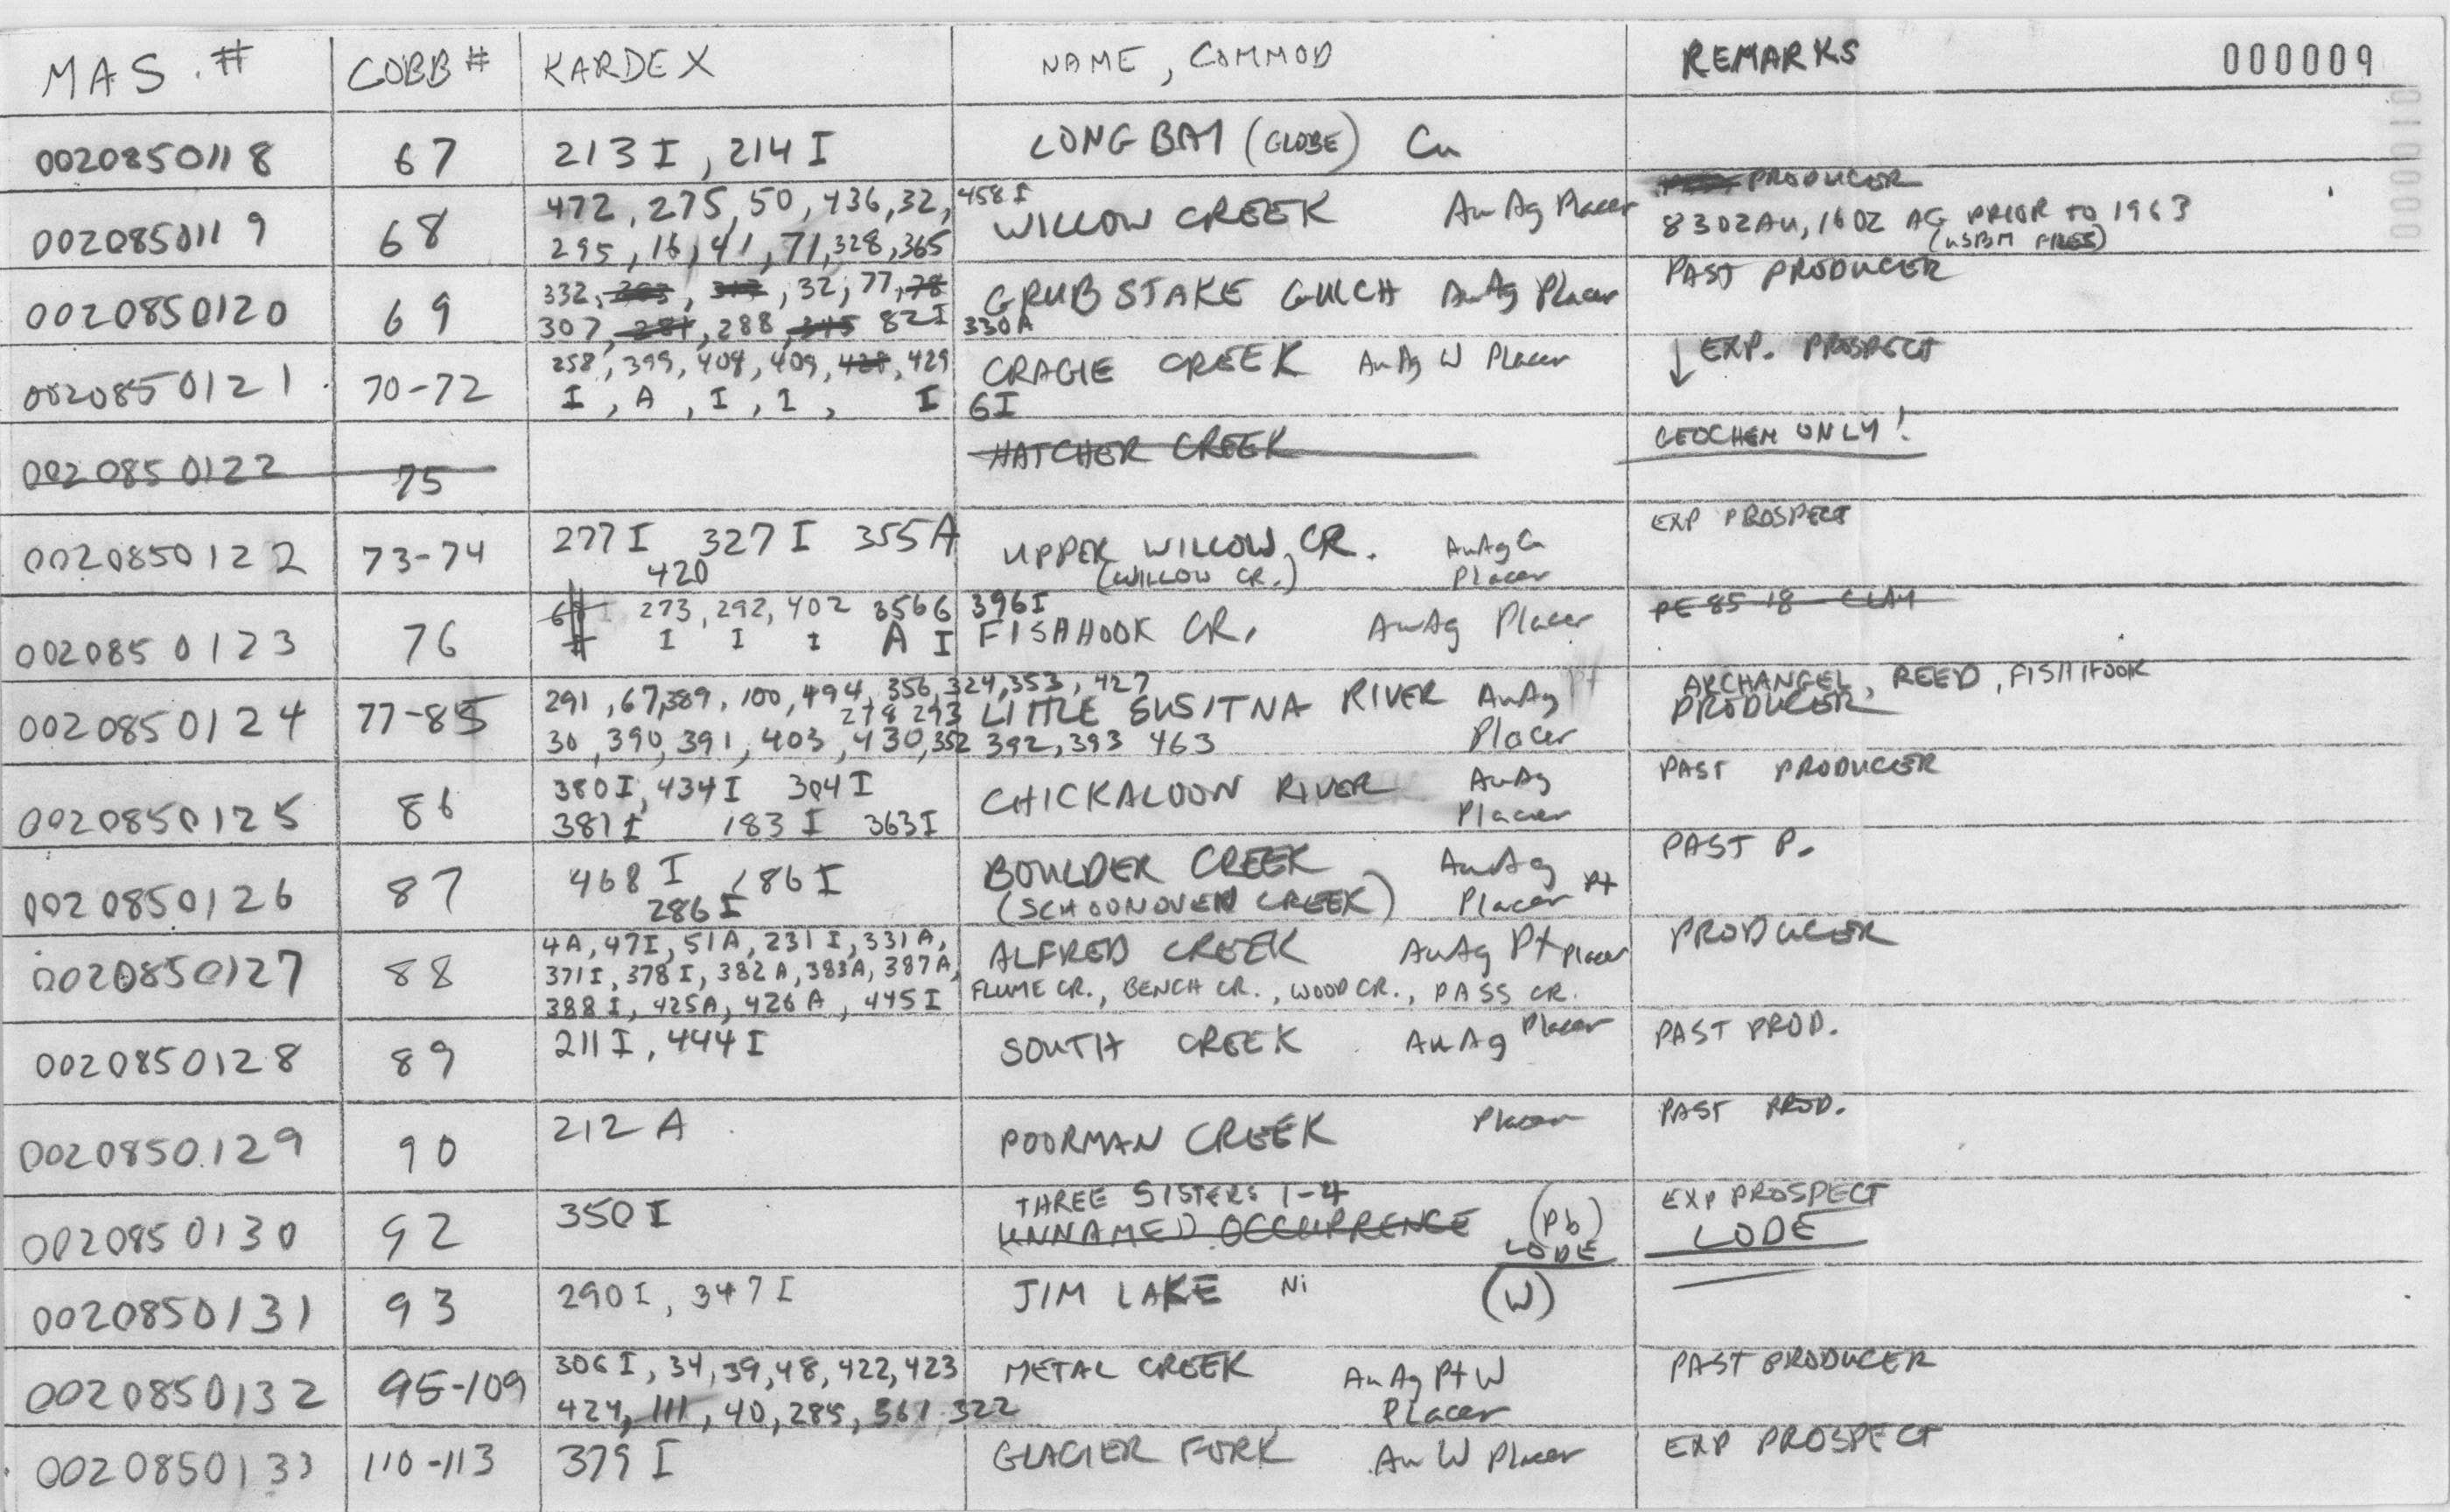 MAS. # COBB # KARDEX NAME, COMMOD REMARKS 000009
000010
0020850118 67 213 I, 214 I LONG BAY (GLOBE) Cu
0020850119 68 472, 275, 50, 436, 32, 458 I WILLOW CREEK AuAg Placer PRODUCER
295, 16, 41, 71, 328, 365 830Z AU, 16 OZ AG PRIOR TO 1963
(USBM FILES)
0020850120 69 332, 32, 77, 78 GRUBSTAKE GULCH AuAg Placer PAST PRODUCER
307, 288, 82I 330A
0020850121 70-72 258, 399, 404, 409, 428, 429 CRAGIE CREEK AuAg W Placer ↓ EXP. PROSPECT
I, A, I, I, I 6I
0020850122 75 HATCHER CREEK GEOCHEM ONLY!
0020850122 73-74 277 I 327 I 355 A UPPER WILLOW CR. AuAg Cu EXP PROSPECT
420 (WILLOW CR.) Placer
0020850123 76 273, 292, 402 356 6 396I FISHHOOK CR. AuAg Placer PE 85-18 CLAY
I I I A I
0020850124 77-85 291, 67, 389, 100, 494, 356, 324, 353, 427 LITTLE SUSITNA RIVER AuAg Pt ARCHANGEL, REED, FISHHOOK
278 293 PRODUCER
30, 390, 391, 403, 430, 352 392, 393 463 Placer
0020850125 86 380I, 434I 304I CHICKALOON RIVER AuAg PAST PRODUCER
381 I 183 I 363I Placer
0020850126 87 468 I 186 I BOULDER CREEK AuAg PAST P.
286 I (SCHOONOVEN CREEK) Placer Pt
0020850127 88 4A, 47I, 51A, 231 I, 331A, ALFRED CREEK AuAg Pt Placer PRODUCER
371I, 378 I, 382 A, 383A, 387A, FLUME CR., BENCH CR., WOOD CR., PASS CR.
388 I, 425A, 426 A, 445 I
0020850128 89 211 I, 444 I SOUTH CREEK AuAg Placer PAST PROD.
0020850129 90 212 A POORMAN CREEK Placer PAST PROD.
0020850130 92 350 I THREE SISTERS 1-4 (Pb) EXP PROSPECT
UNNAMED OCCURRENCE LODE LODE
0020850131 93 290 I, 347 I JIM LAKE Ni (W)
0020850132 95-109 306 I, 34, 39, 48, 422, 423 METAL CREEK Au Ag Pt W PAST PRODUCER
424, 111, 40, 285, 361, 322 Placer
0020850133 110-113 379 I GLACIER FORK Au W Placer EXP PROSPECT